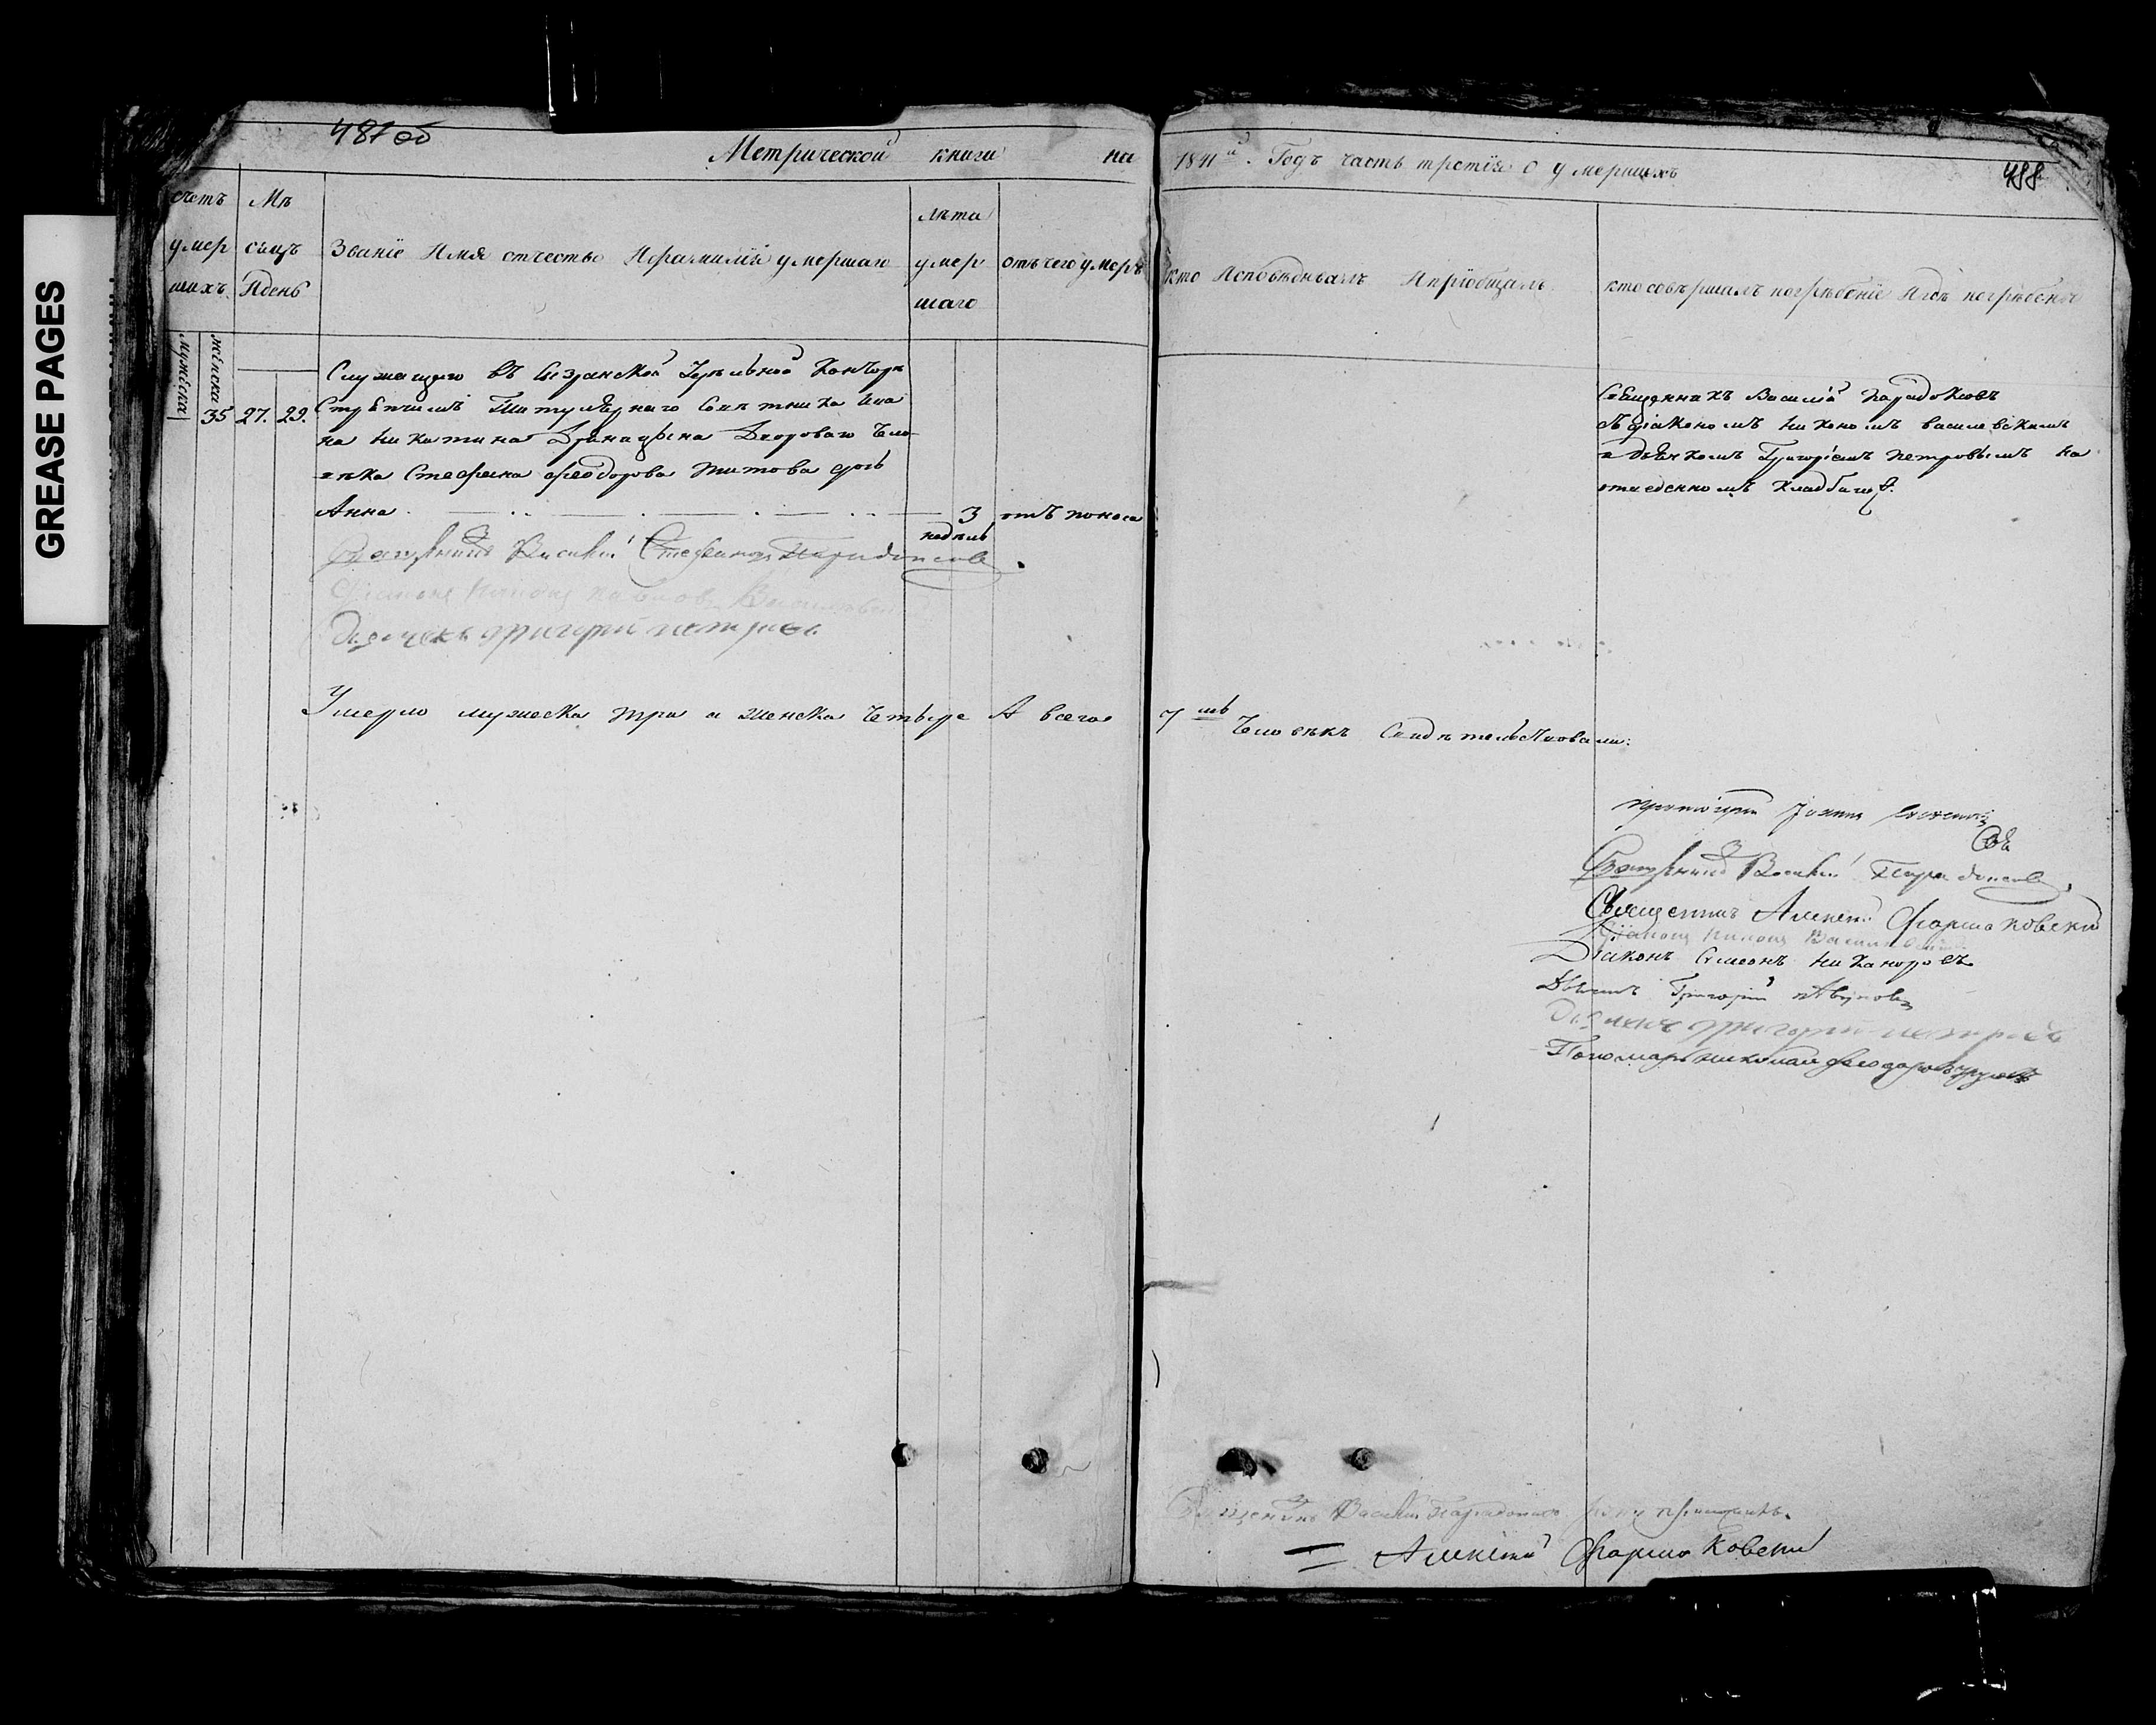 GREASE PAGES
481 об
Метрической книги на 1841й. Годъ часть третїя о умершихъ
488
счетъ умер шихъ
Мѣ сяцъ Идень
Званїе Имя отчество Ифамилїя умершаго
лѣта умер шаго
отъ чего умеръ
кто Исповѣдывалъ Ипрїобщалъ
кто совѣршалъ погрѣбенїе Игдѣ погрѣбены
мужеска
женска
Служащаго въ Сызранской Удѣльной Канторѣ
35 27. 29. Стряпчимъ Титулярнаго Советника Ива
на Никитина Дворового Чело
вѣка Стефана Феодорова Титова дочь
Анна 3 отъ поноса
недѣль
Священникъ Василий Парадоксовъ
съ діакономъ Никономъ Василевскимъ
и дьячкомъ Григоріемъ Петровымъ на
отведенномъ кладбищѣ.
Священникъ Василій Стефановъ Парадоксовъ.
Діаконъ Никонъ Василевскій
Дьячекъ Григорій Петровъ
Умерло мужеска три и женска четыре А всего 7мь Человѣкъ Свидѣтельствовали:
протоіерей Іоаннъ
Священникъ Василій Парадоксовъ
Священникъ Алексѣй Фармаковскій
Діаконъ Никонъ Василевскій
Діаконъ Симеонъ Никаноровъ
Дьячекъ Григорій
Дьячекъ Григорій Петровъ
Пономарь Николай Феодоровъ
Священникъ Василій Парадоксовъ
= Алексѣй Фармаковскій